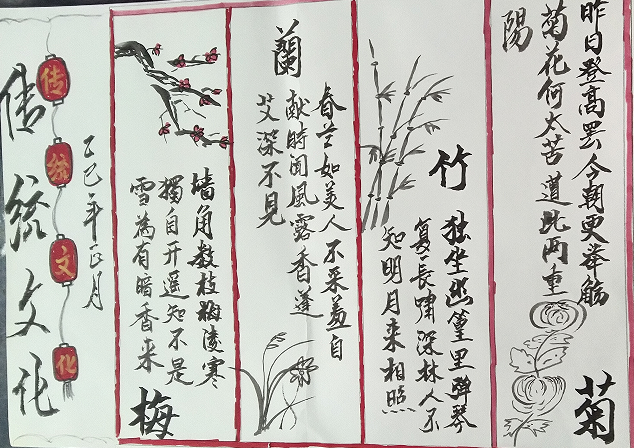 昨日登高罢今朝更举觞
菊花何太苦遭此两重
陽
菊
竹
独坐幽篁里弹琴
复長嘯深林人不
知明月来相照
蘭
春兰如美人不采羞自
献時闻風露香蓬
艾深不見
墙角数枝梅凌寒
獨自开遥知不是
雪為有暗香来
梅
乙巳年正月
传统文化
传统文化